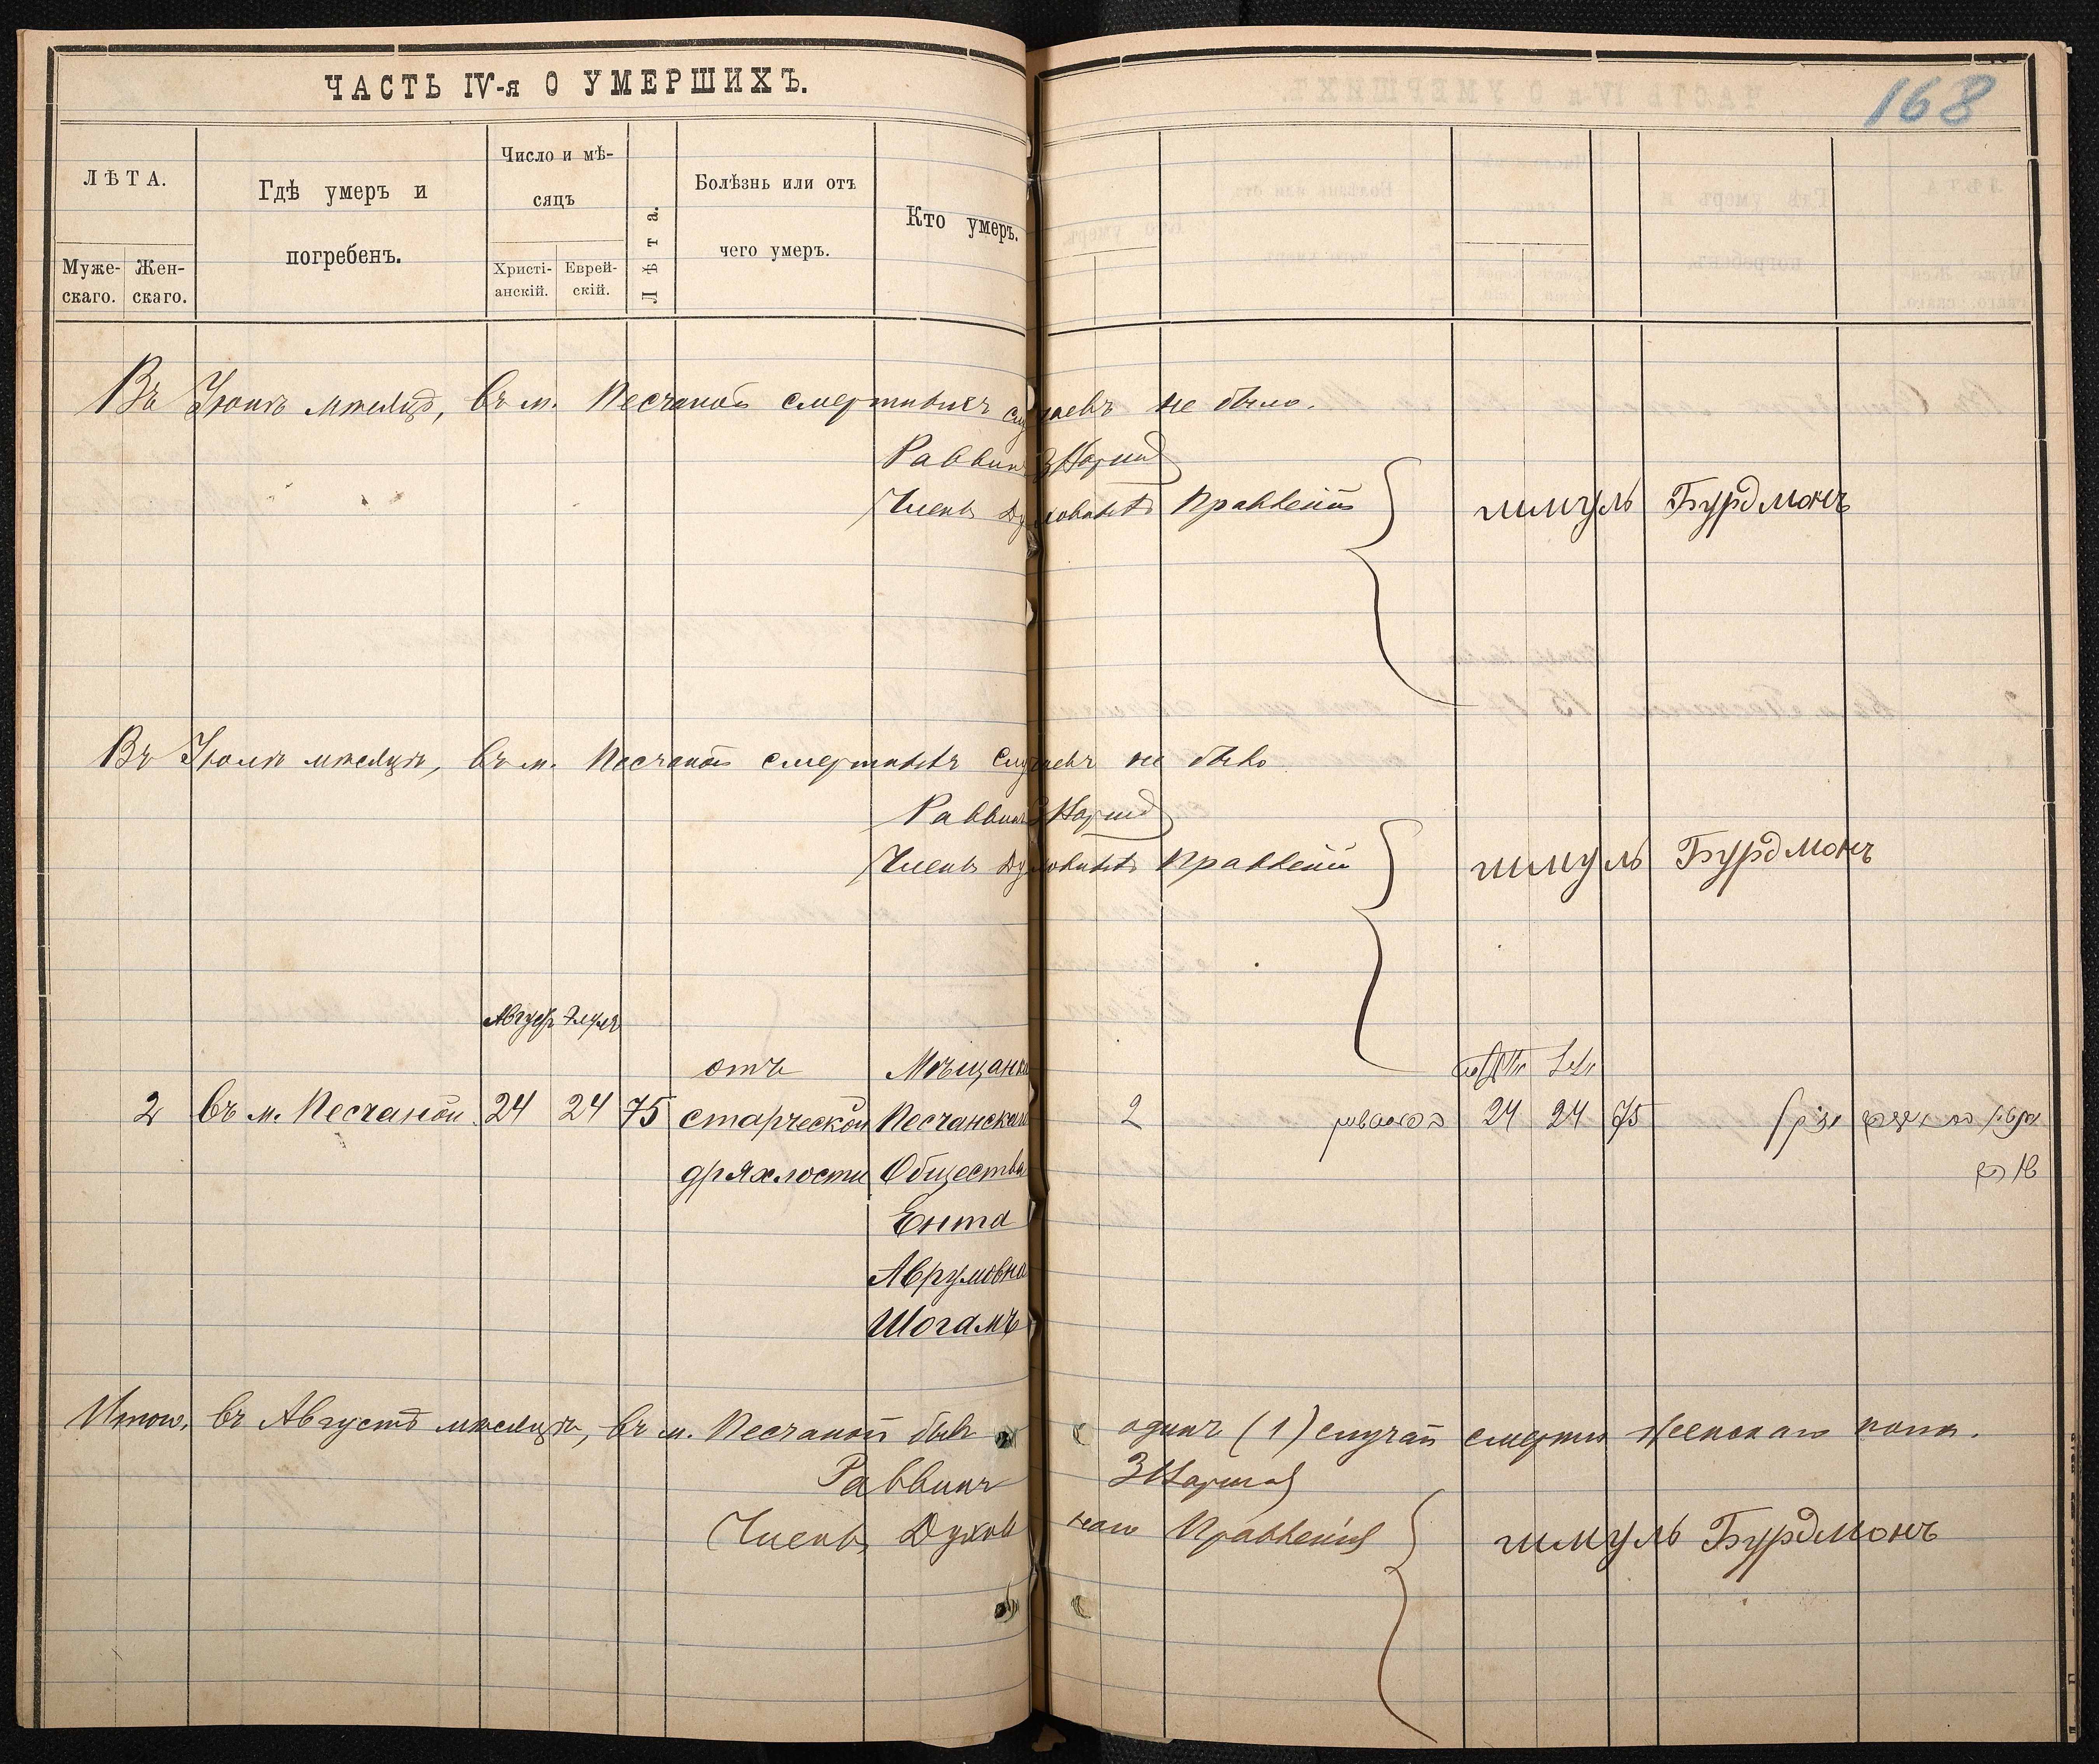 ЧАСТЬ IV-я О УМЕРШИХЪ.
168
ЛѢТА.
Муже-
скаго.
Жен-
скаго.
Гдѣ умеръ и
погребенъ.
Число и мѣ-
сяцъ
Христі-
анскій.
Еврей-
скій.
Лѣта.
Болѣзнь или отъ
чего умеръ.
Кто умеръ.
Въ Іюнѣ мѣсяцѣ, въ м. Песчаной смертныхъ случаевъ не было.
Раввинъ
Членъ Духовнаго Правленія шмуль Бурдмонъ
Въ Іюлѣ мѣсяцѣ, въ м. Песчаной смертныхъ случаевъ не было
Раввинъ
Членъ Духовнаго Правленія шмуль Бурдмонъ
Август Элуля
отъ Мѣщанка
2 въ м. Песчаной 24 24 75 старческой Песчанскаго 2 24 24 75
дряхлости Общества
Ента
Аврумовна
Шогамъ
Итого, въ Августѣ мѣсяцѣ, въ м. Песчаной былъ одинъ (1) случай смерти женскаго пола.
Раввинъ
Членъ Духовнаго Правленія шмуль Бурдмонъ